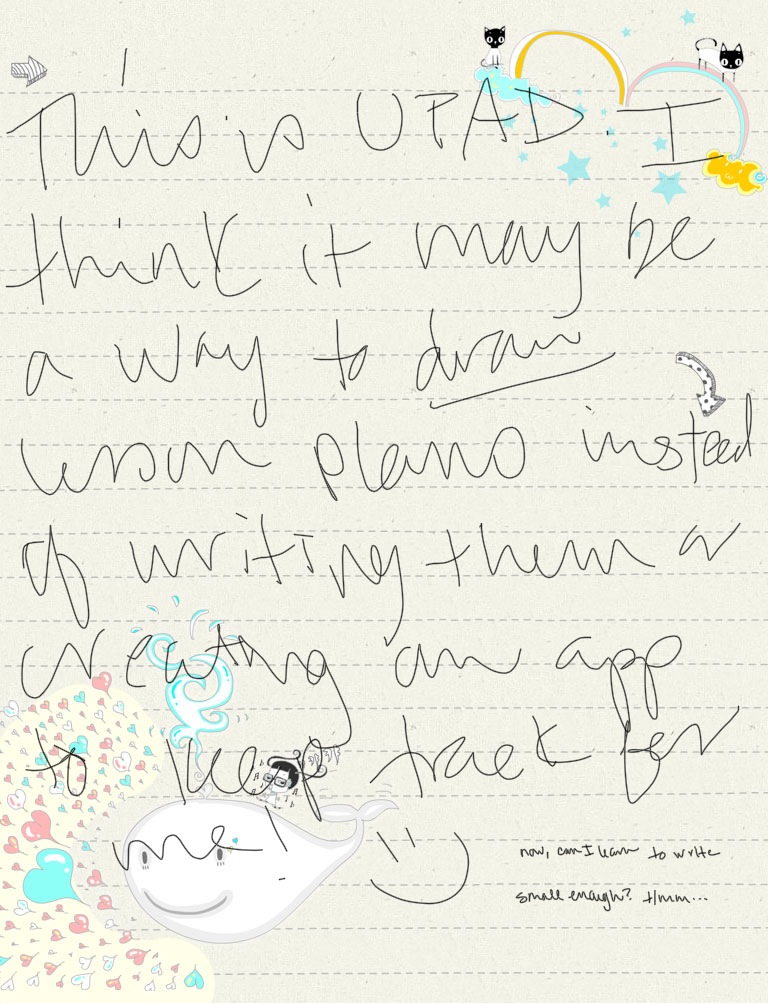 This is UPAD. I
think it may be
a way to draw
lesson plans instead
of writing them or
creating an app
to keep track for
me!
now, can I learn to write
small enough? Hmm...